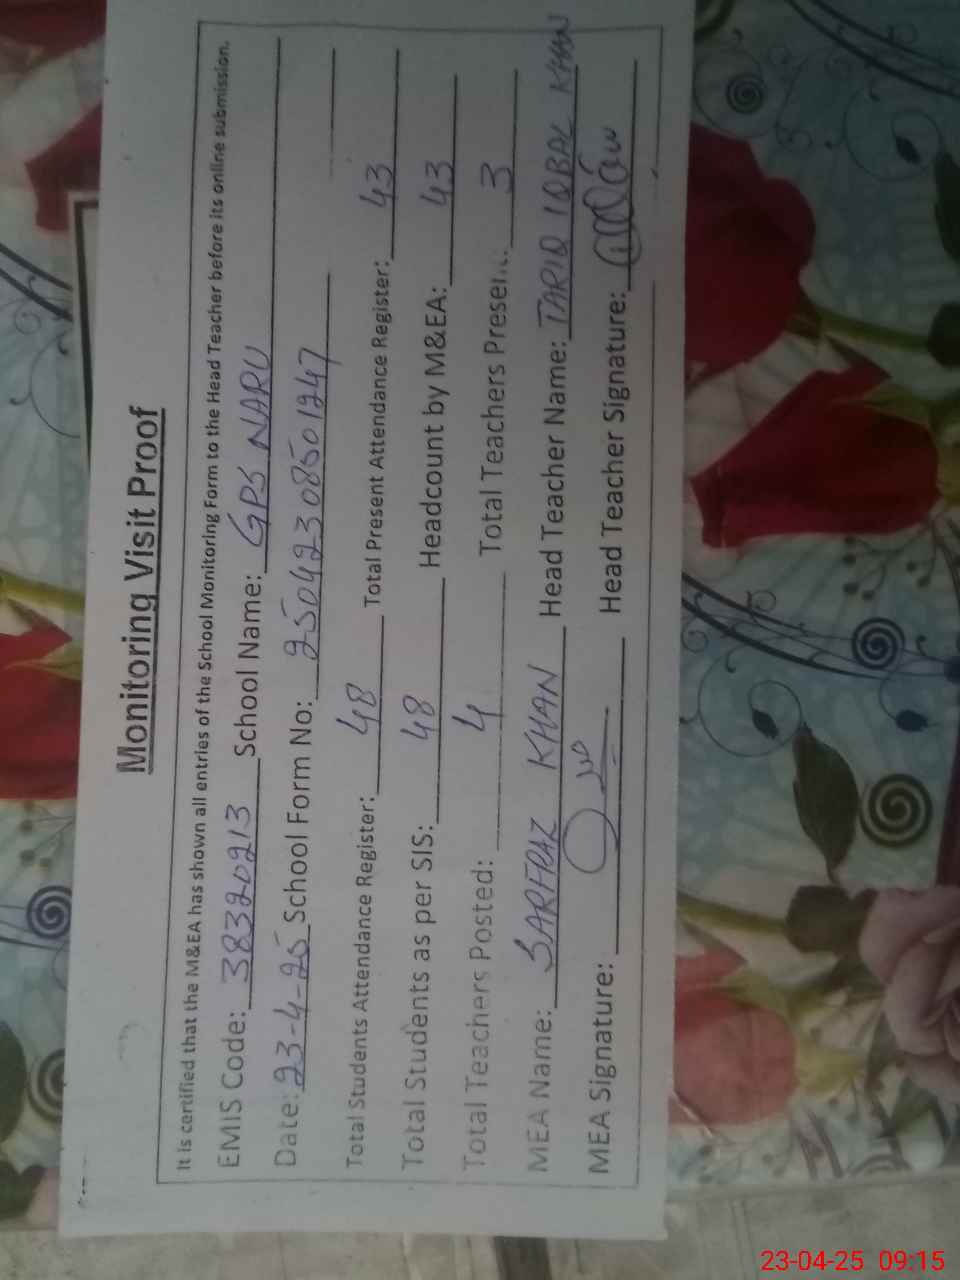 Monitoring Visit Proof
It is certified that the M&EA has shown all entries of the School Monitoring Form to the Head Teacher before its online submission.
EMIS Code: 38320213 School Name: GPS NARU
Date: 23-4-25 School Form No: 25042308501247
Total Students Attendance Register: 48 Total Present Attendance Register: 43
Total Students as per SIS: 48 Headcount by M&EA: 43
Total Teachers Posted: 4 Total Teachers Present: 3
MEA Name: SARFRAZ KHAN Head Teacher Name: TARIQ IQBAL KHAN
MEA Signature: Head Teacher Signature:
23-04-25 09:15